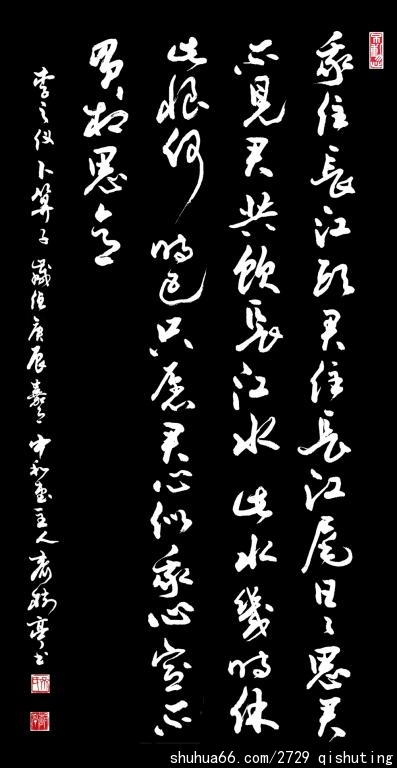 我住長江头君住長江尾日々思君
不見君共飲長江水此水幾時休
此恨何時已只愿君心似我心定不
負相思意
李之仪卜算子歲值庚辰中和主人齐樹亭书
shuhua66.com/2729 qishuting